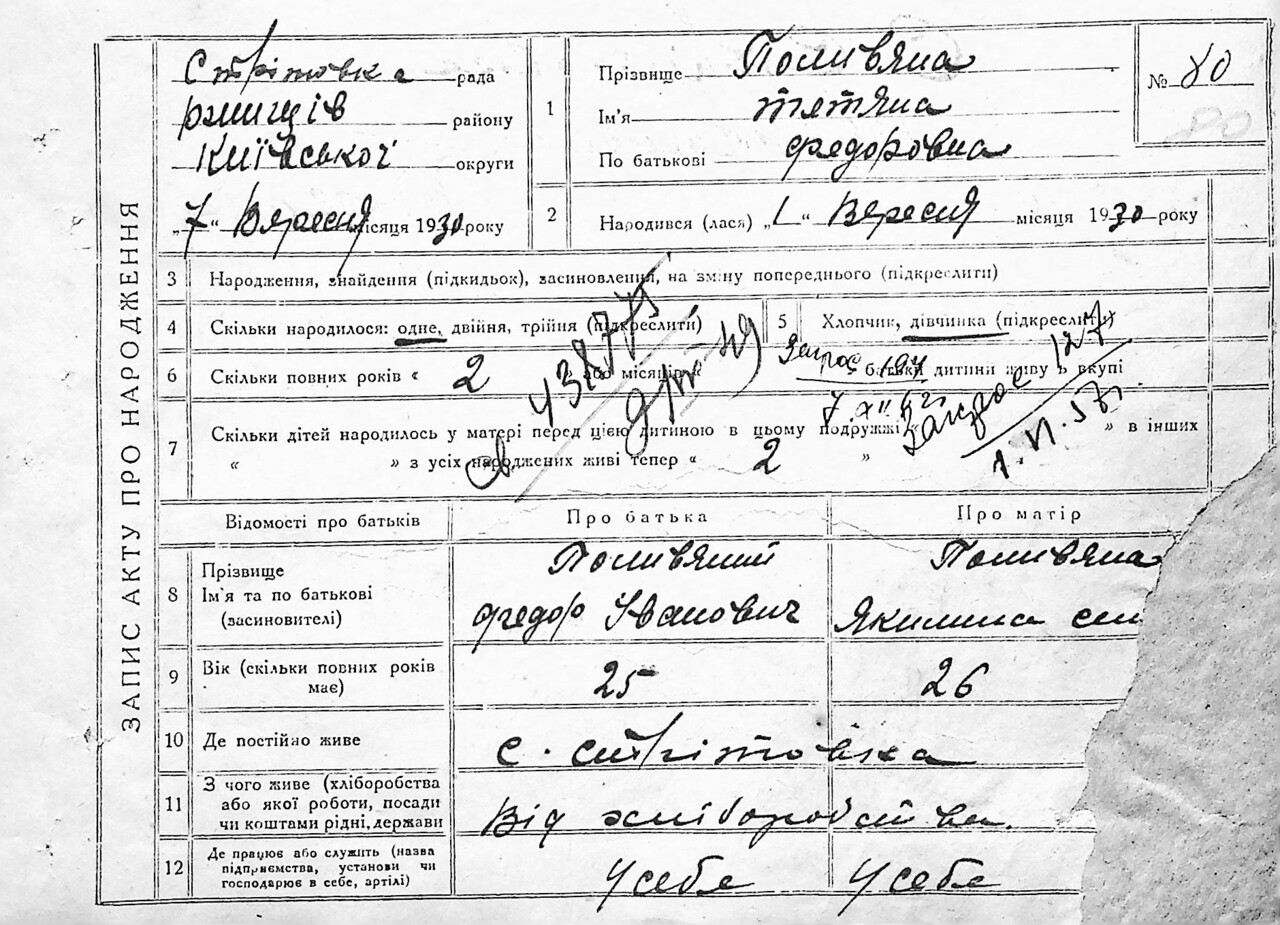 ЗАПИС АКТУ ПРО НАРОДЖЕННЯ
Стрітовка рада
Ржищів району
Київської округи
„7“ Вересня місяця 1930 року
1 Прізвище Поливяна
Ім'я Тетяна
По батькові Федоровна
№ 80
80
2 Народився (лася) „1“ Вересня місяця 1930 року
3 Народження, знайдення (підкидьок), засиновлення, на зміну попереднього (підкреслити)
4 Скільки народилося: одне, двійня, трійня (підкреслити)
5 Хлопчик, дівчинка (підкреслити)
6 Скільки повних років « 2 » або місяців « батьки дитини живуть вкупі
7 Скільки дітей народилось у матері перед цією дитиною в цьому подружжі « » в інших
« » з усіх народжених живі тепер « 2 »
Відомості про батьків Про батька Про матір
8 Прізвище Поливяний Поливяна
Ім'я та по батькові Федор Іванович Якилина
(засиновителі)
9 Вік (скільки повних років має) 25 26
10 Де постійно живе с. Стрітовка
11 З чого живе (хліборобства
або якої роботи, посади
чи коштами рідні, держави Від хліборобства.
12 Де працює або служить (назва
підприємства, установи чи
господарює в себе, артілі) У себе У себе